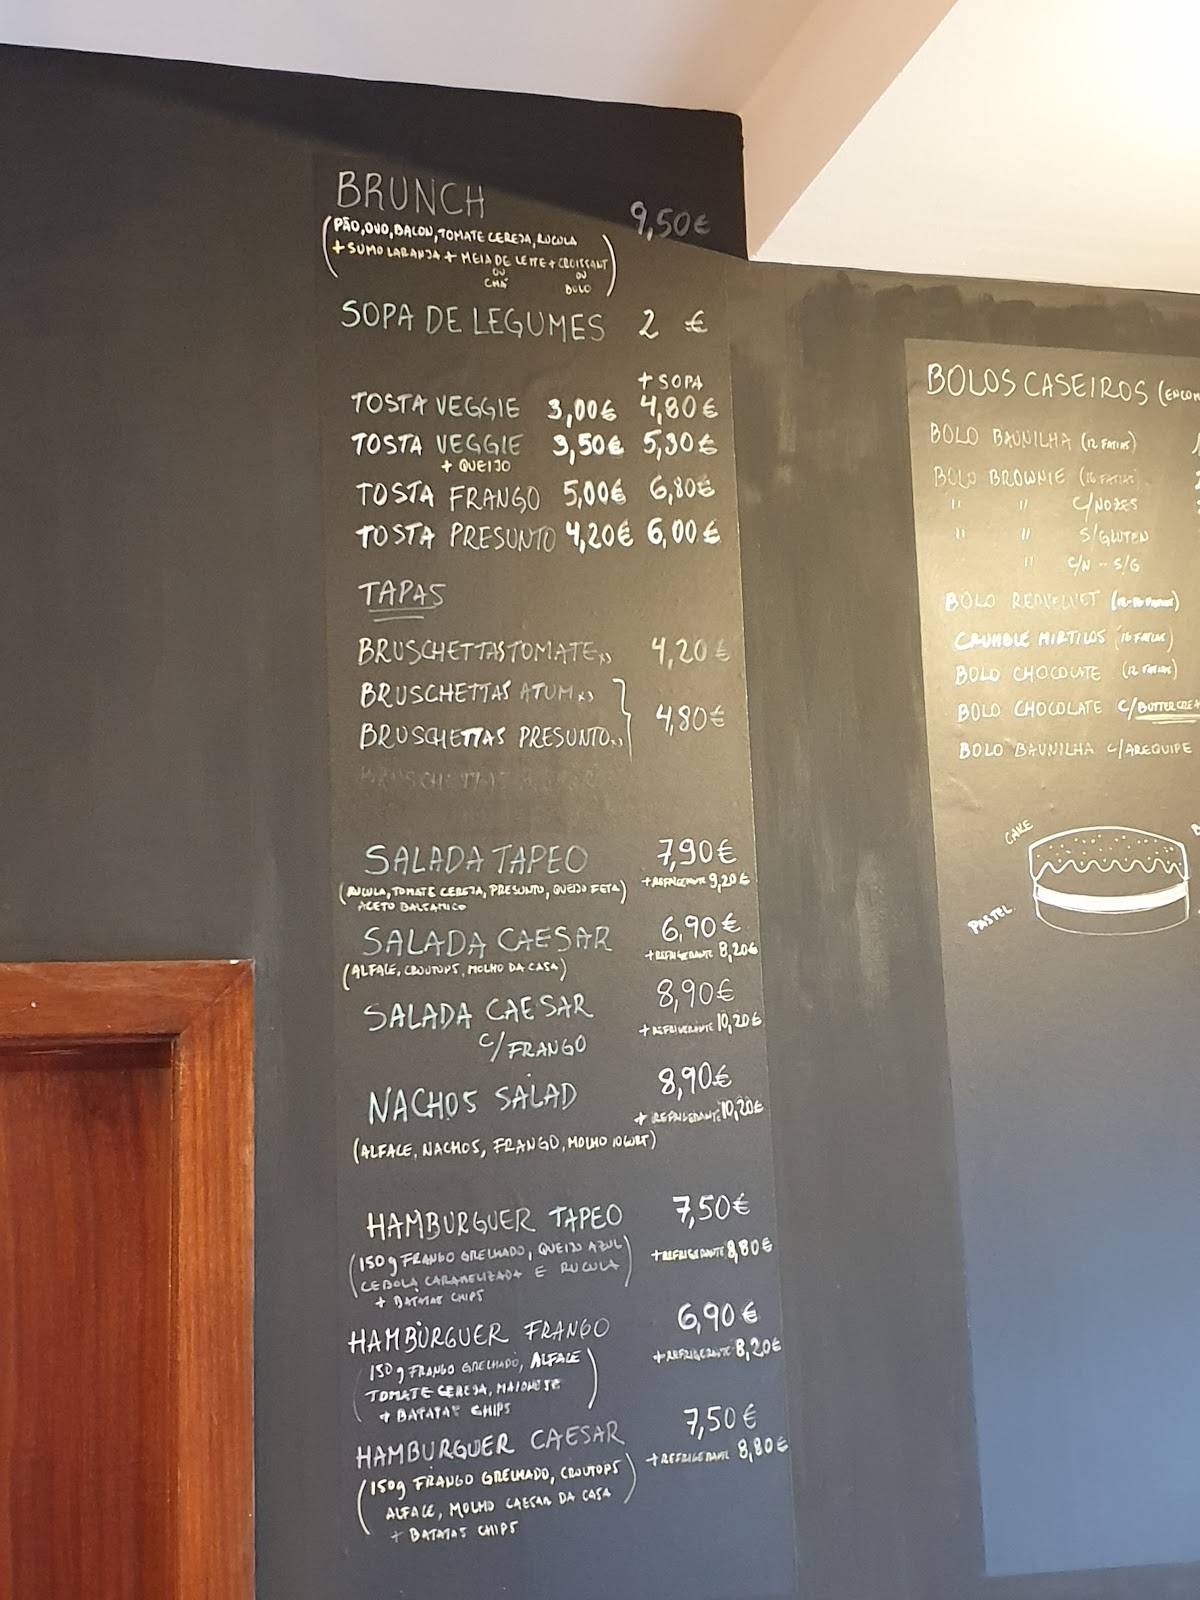 BRUNCH 9,50€
(PÃO, OVO, BACON, TOMATE CEREJA, RUCULA
+ SUMO LARANJA + MEIA DE LEITE + CROISSANT
OU OU
CHÁ BOLO)
SOPA DE LEGUMES 2 €
+ SOPA
TOSTA VEGGIE 3,00€ 4,80€
TOSTA VEGGIE 3,50€ 5,30€
+ QUEIJO
TOSTA FRANGO 5,00€ 6,80€
TOSTA PRESUNTO 4,20€ 6,00€
TAPAS
BRUSCHETTAS TOMATE x3 4,20€
BRUSCHETTAS ATUM x3
4,80€
BRUSCHETTAS PRESUNTO x3
BRUSCHETTAS
SALADA TAPEO 7,90€
(RUCULA, TOMATE CEREJA, PRESUNTO, QUEIJO FETA) + REFRIGERANTE 9,20€
ACETO BALSAMICO
SALADA CAESAR 6,90€
+ REFRIGERANTE 8,20€
(ALFALE, CROUTOPS, MOLHO DA CASA)
SALADA CAESAR 8,90€
+ REFRIGERANTE 10,20€
C/ FRANGO
NACHOS SALAD 8,90€
+ REFRIGERANTE 10,20€
(ALFALE, NACHOS, FRANGO, MOLHO IOGURT)
HAMBURGUER TAPEO 7,50€
(150g FRANGO GRELHADO, QUEIJO AZUL + REFRIGERANTE 8,80€
CEBOLA CARAMELIZADA E RUCULA)
+ BATATAS CHIPS
HAMBURGUER FRANGO 6,90€
(150g FRANGO GRELHADO, ALFALE + REFRIGERANTE 8,20€
TOMATE CEREJA, MAIONESE
+ BATATAS CHIPS)
HAMBURGUER CAESAR 7,50€
+ REFRIGERANTE 8,80€
(150g FRANGO GRELHADO, CROUTOPS
ALFALE, MOLHO CAESAR DA CASA)
+ BATATAS CHIPS
BOLOS CASEIROS (ENCOM
BOLO BAUNILHA (12 FATIAS)
BOLO BROWNIE (16 FATIAS)
" " C/NOZES
" " S/GLUTEN
" C/N - S/G
BOLO REDVELVET (12-16 FATIAS)
CRUMBLE MIRTILOS (16 FATIAS)
BOLO CHOCOLATE (12 FATIAS)
BOLO CHOCOLATE C/BUTTERCREA
BOLO BAUNILHA C/AREQUIPE
CAKE
PASTEL